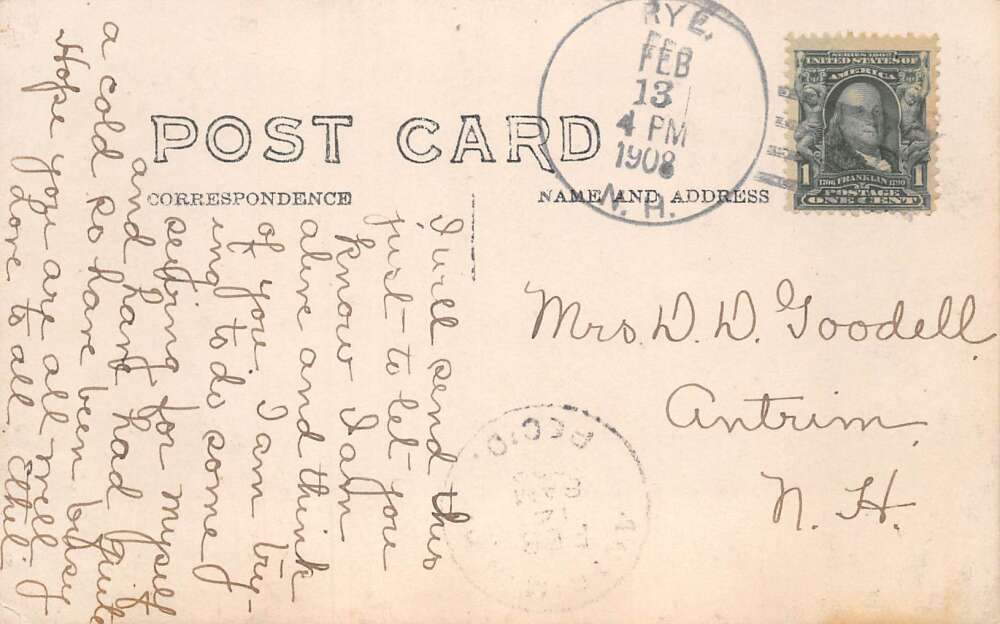 POST CARD
CORRESPONDENCE
NAME AND ADDRESS
RYE,
FEB
13
4 PM
1908
N.H.
SERIES 1902
UNITED STATES OF
AMERICA
1 1706 FRANKLIN 1790 1
POSTAGE
ONE CENT
I will send this
just to let you
know I am
alive and think
of you. I am try-
ing to do some
sewing for myself
and have had quite
a cold so have been busy
Hope you are all well
Love to all. Ethel.
Mrs. D. D. Goodell
Antrim
N. H.
REC'D.